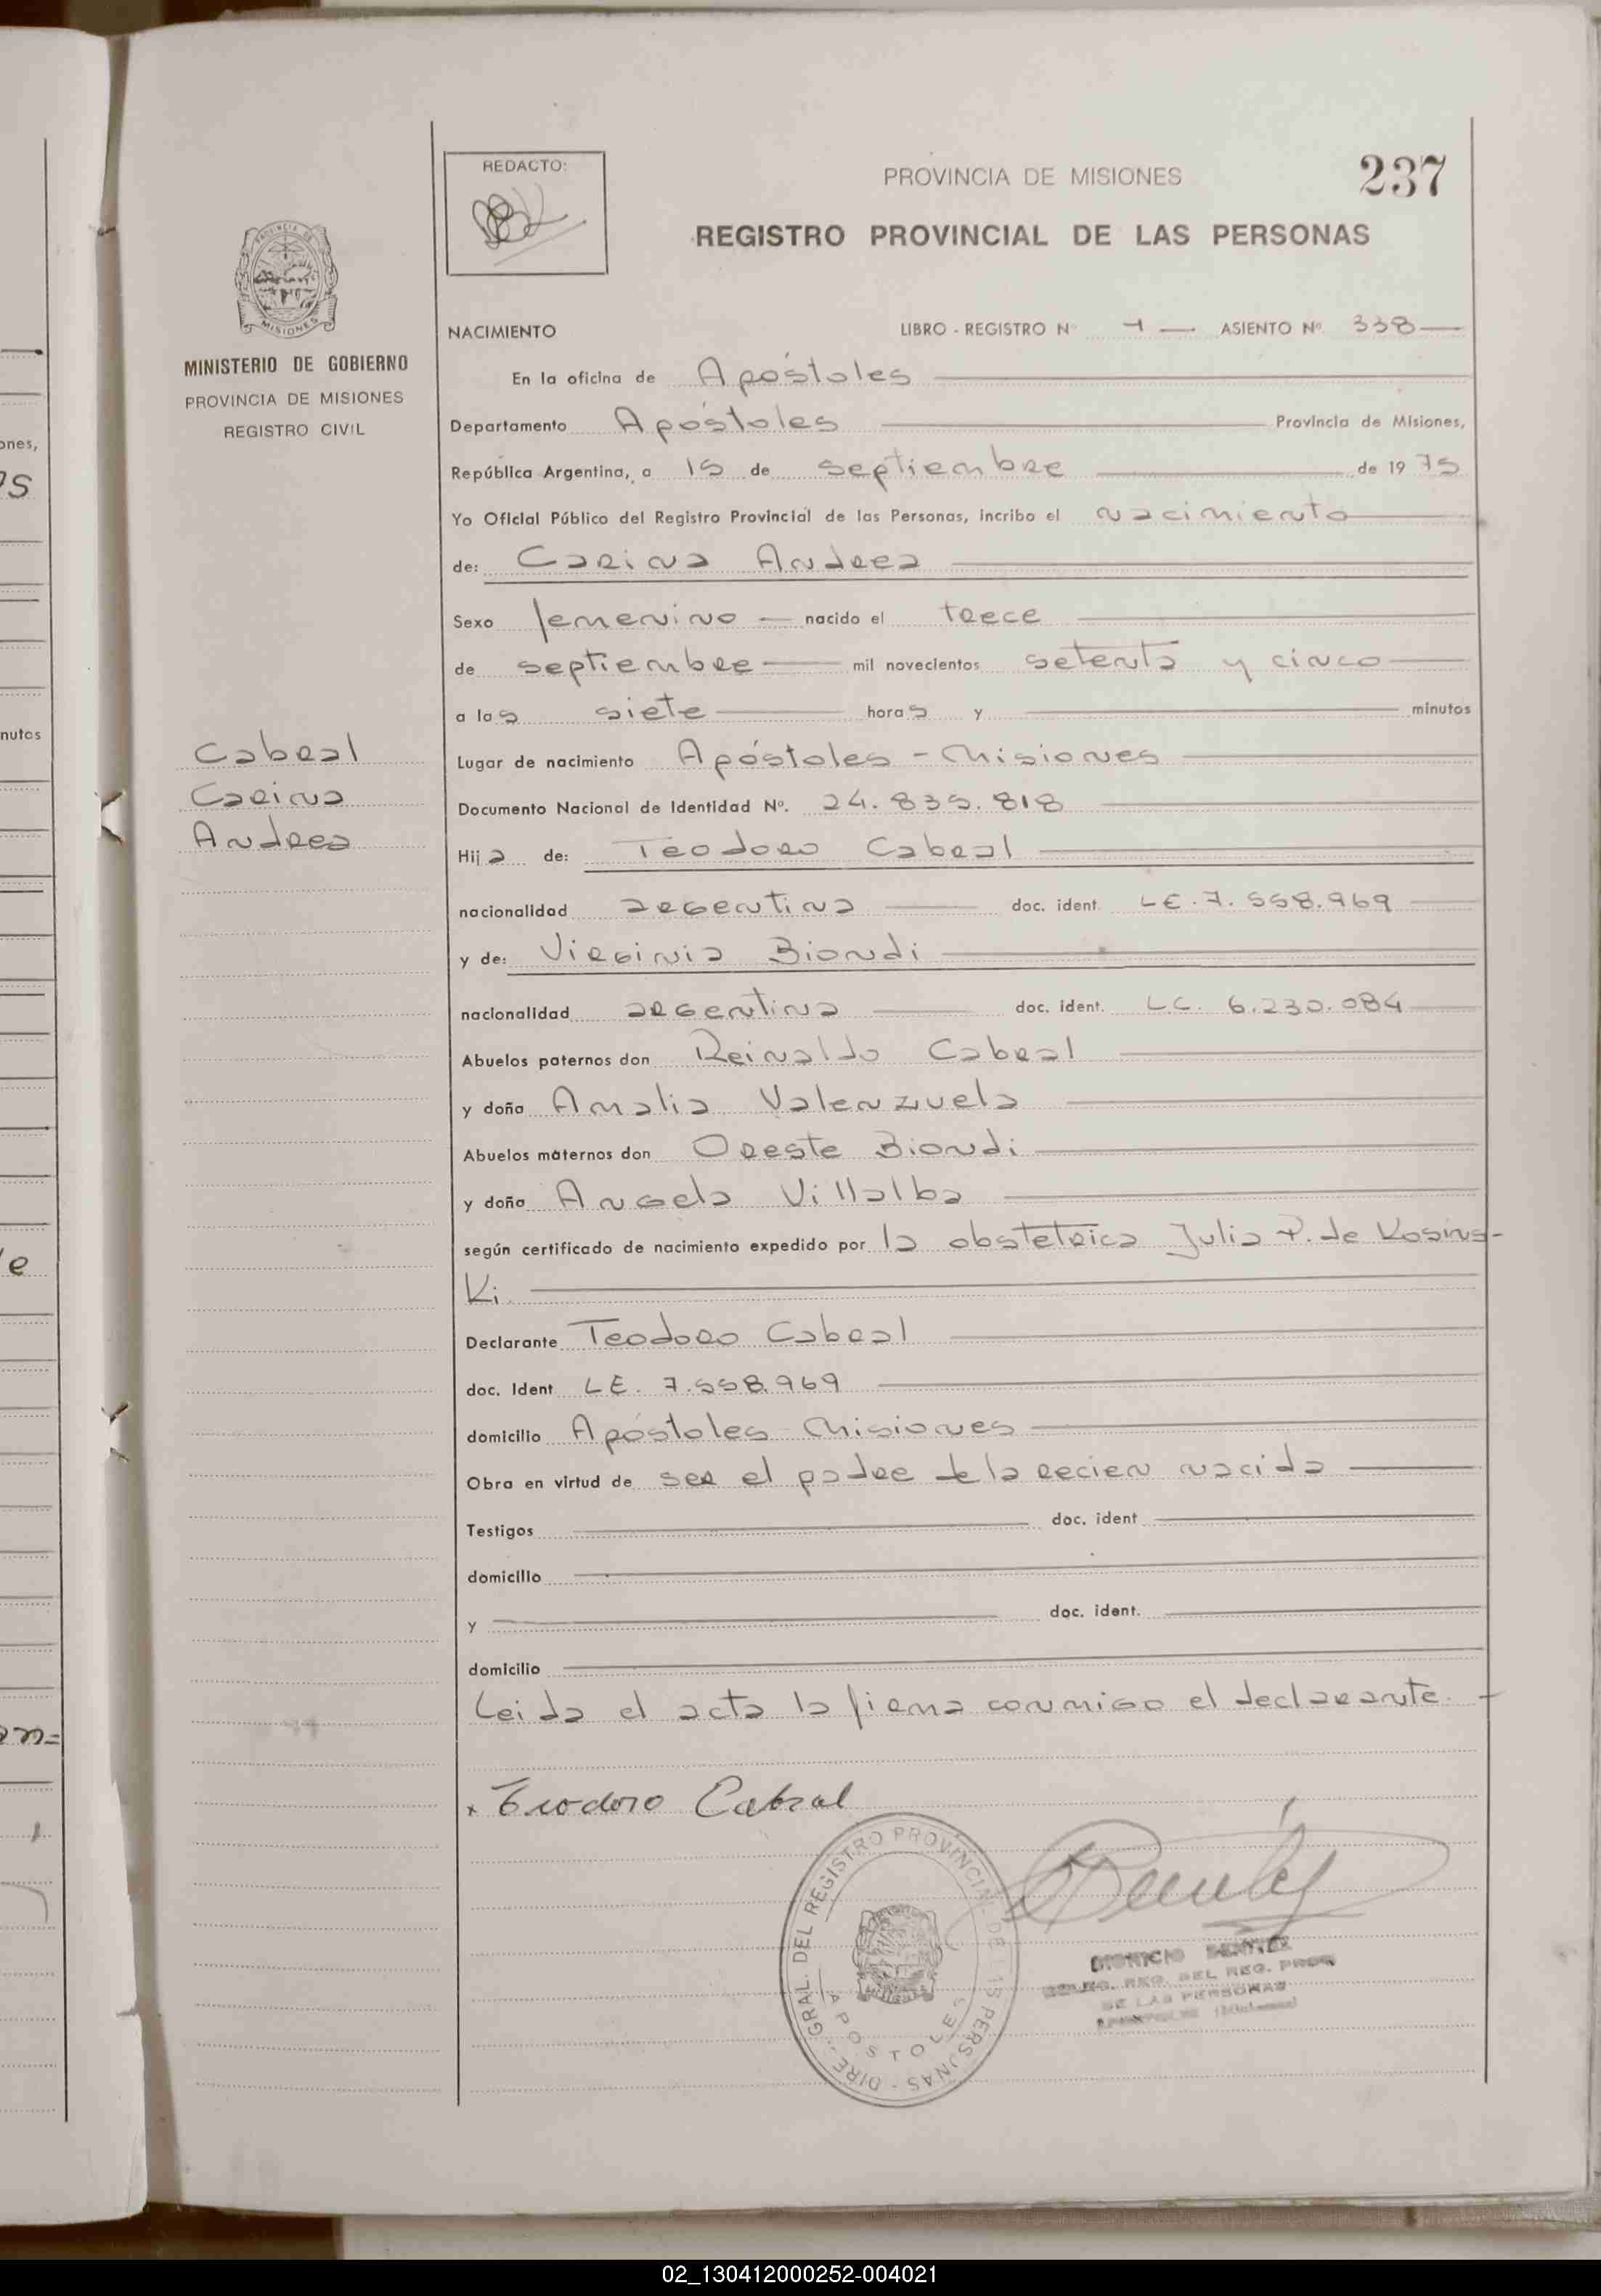 REDACTO:
PROVINCIA DE MISIONES
237
REGISTRO PROVINCIAL DE LAS PERSONAS
MISIONES
MINISTERIO DE GOBIERNO
PROVINCIA DE MISIONES
REGISTRO CIVIL
NACIMIENTO
LIBRO - REGISTRO Nº 1 ASIENTO Nº 338
En la oficina de Apóstoles
Departamento Apóstoles Provincia de Misiones,
República Argentina, a 15 de septiembre de 1975
Yo Oficial Público del Registro Provincial de las Personas, incribo el nacimiento
de: Carina Andrea
Sexo femenino nacido el trece
de septiembre mil novecientos setenta y cinco
a las siete horas y minutos
Cabral
Carina
Andrea
Lugar de nacimiento Apóstoles - Misiones
Documento Nacional de Identidad Nº. 24.835.818
Hija de: Teodoro Cabral
nacionalidad argentina doc. ident. LE. 7.558.969
y de: Virginia Biondi
nacionalidad argentina doc. ident. LC. 6.230.084
Abuelos paternos don Reinaldo Cabral
y doña Amalia Valenzuela
Abuelos maternos don Oreste Biondi
y doña Angela Villalba
según certificado de nacimiento expedido por la obstetrica Julia P. de Kosins-
Ki.
Declarante Teodoro Cabral
doc. Ident LE. 7.558.969
domicilio Apóstoles - Misiones
Obra en virtud de ser el padre de la recien nacida
Testigos doc. ident
domicilio
y doc. ident.
domicilio
Leida el acta la firma conmigo el declarante.
x Teodoro Cabral
DIRE. GRAL. DEL REGISTRO PROVINCIAL DE LAS PERSONAS
APOSTOLES
DIONICIO BENITEZ
DELEG. REG. DEL REG. PROV.
DE LAS PERSONAS
02_130412000252-004021